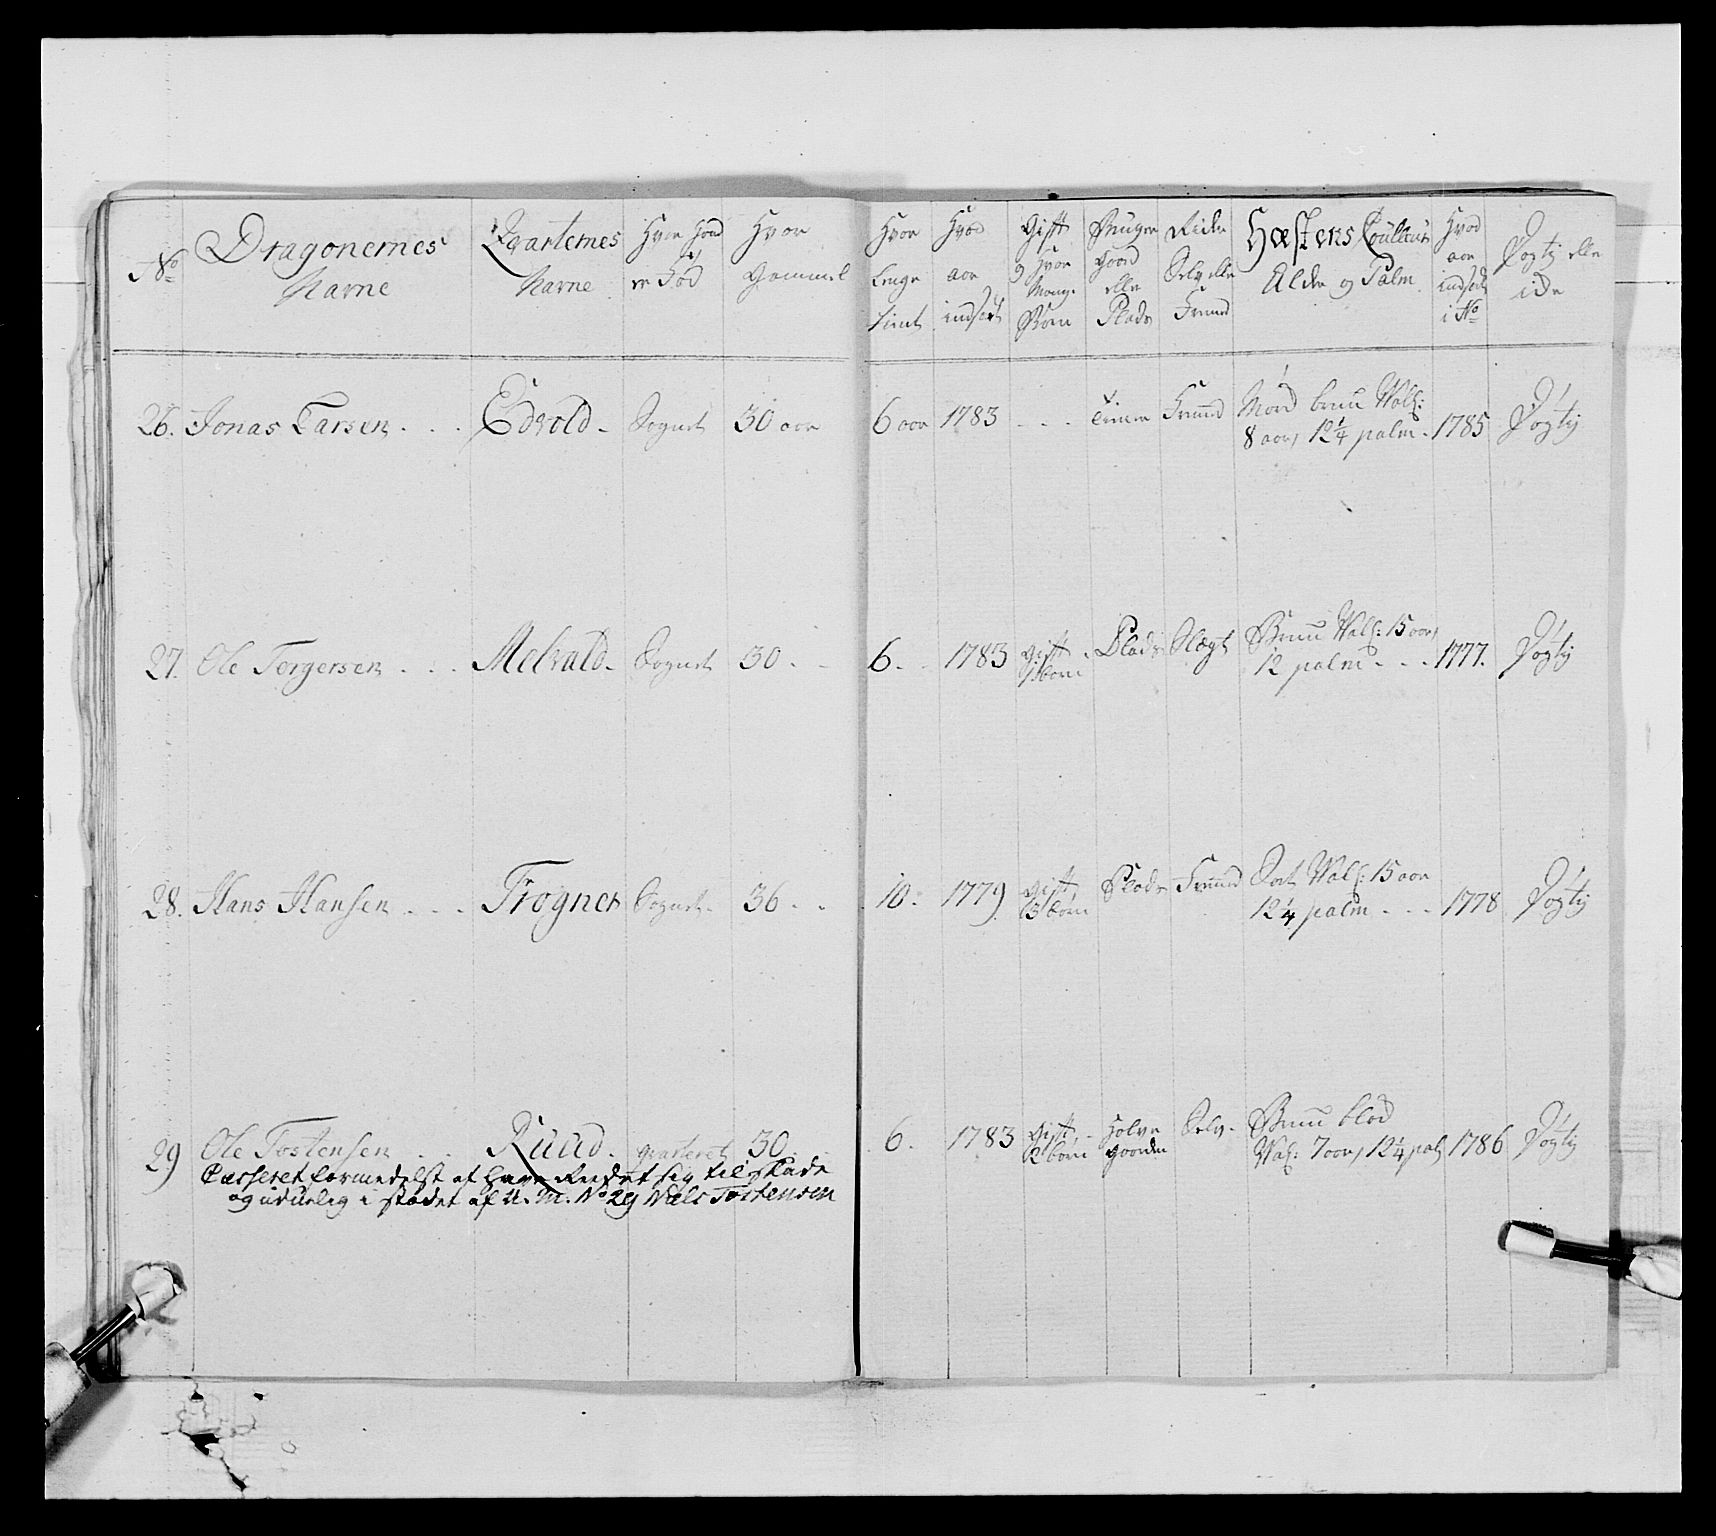 No
Dragonernes
Navne
Qvarternes
Navne
Hvor Hand
er Fød
Hvor
Gammel
Hvor
Lenge
tient
Hvad
aar
indsadt
Gifft
og Hvor
Mange
Børn
Bruger
gaard
elle
Plads
Rider
Selv elle
Fremd
Hæstens Coulleur
Alder og Palm
Hvad
aar
indsadt
i No
Dygtig elle
ide
26. Jonas Larsen . . . Edvold - Sognet 30 aar 6 aar 1783 . . . tiener Fremd
Mörd brun Val:
8 aar, 12 1/4 palm - 1785 Dygtig
27. Ole Torgersen . . . Melvald - Sognet 30 . - 6. - 1783 gifft -
1 børn
Plads Slegt
Brun Val: 15 aar,
12 palm - . - 1777. Dygtig
28. Hans Hansen . . . Frogner Sognet - 36 . . 10 : 1779 gifft
3 børn
Plads Fremd
Sort Val: 15 aar
12 1/4 palm - . - 1778 Dygtig
29 Ole Tostensen . . Ruud - qvarteret 30 . 6. 1783 gifft -
2 børn
Halve
gaarden
Selv -
Brun blod
Val: 7 aar, 12 1/4 pal 1786 Dygtig
Casseret formedelst at have Reedet sig til skade
og uduelig i stædet af U. M. No 29 Niels Tostensen